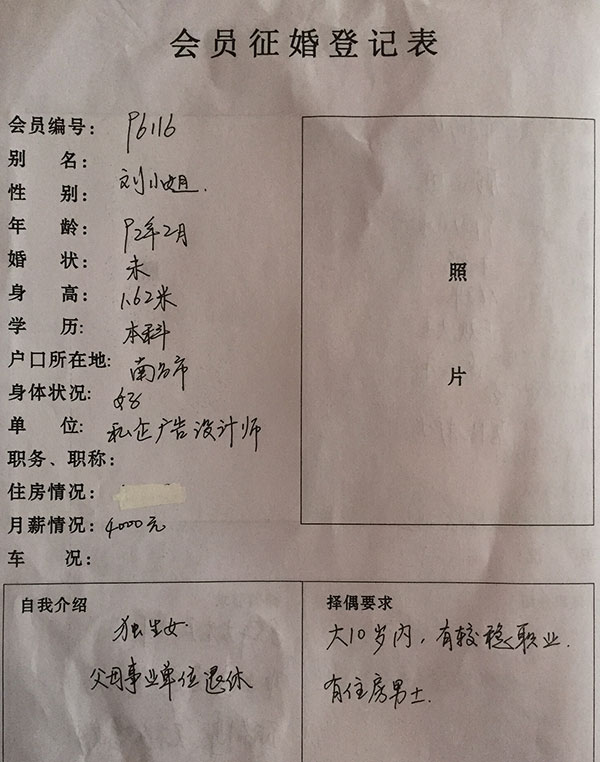 会员征婚登记表
会员编号: P6116
别 名:
性 别: 刘小姐.
年 龄: 92年2月
婚 状: 未
身 高: 1.62米
学 历: 本科
户口所在地: 南昌市
身体状况: 好
单 位: 私企广告设计师
职务、职称:
住房情况:
月薪情况: 4000元
车 况:
照
片
自我介绍
独生女
父母事业单位退休
择偶要求
大10岁内, 有较稳职业.
有住房男士.